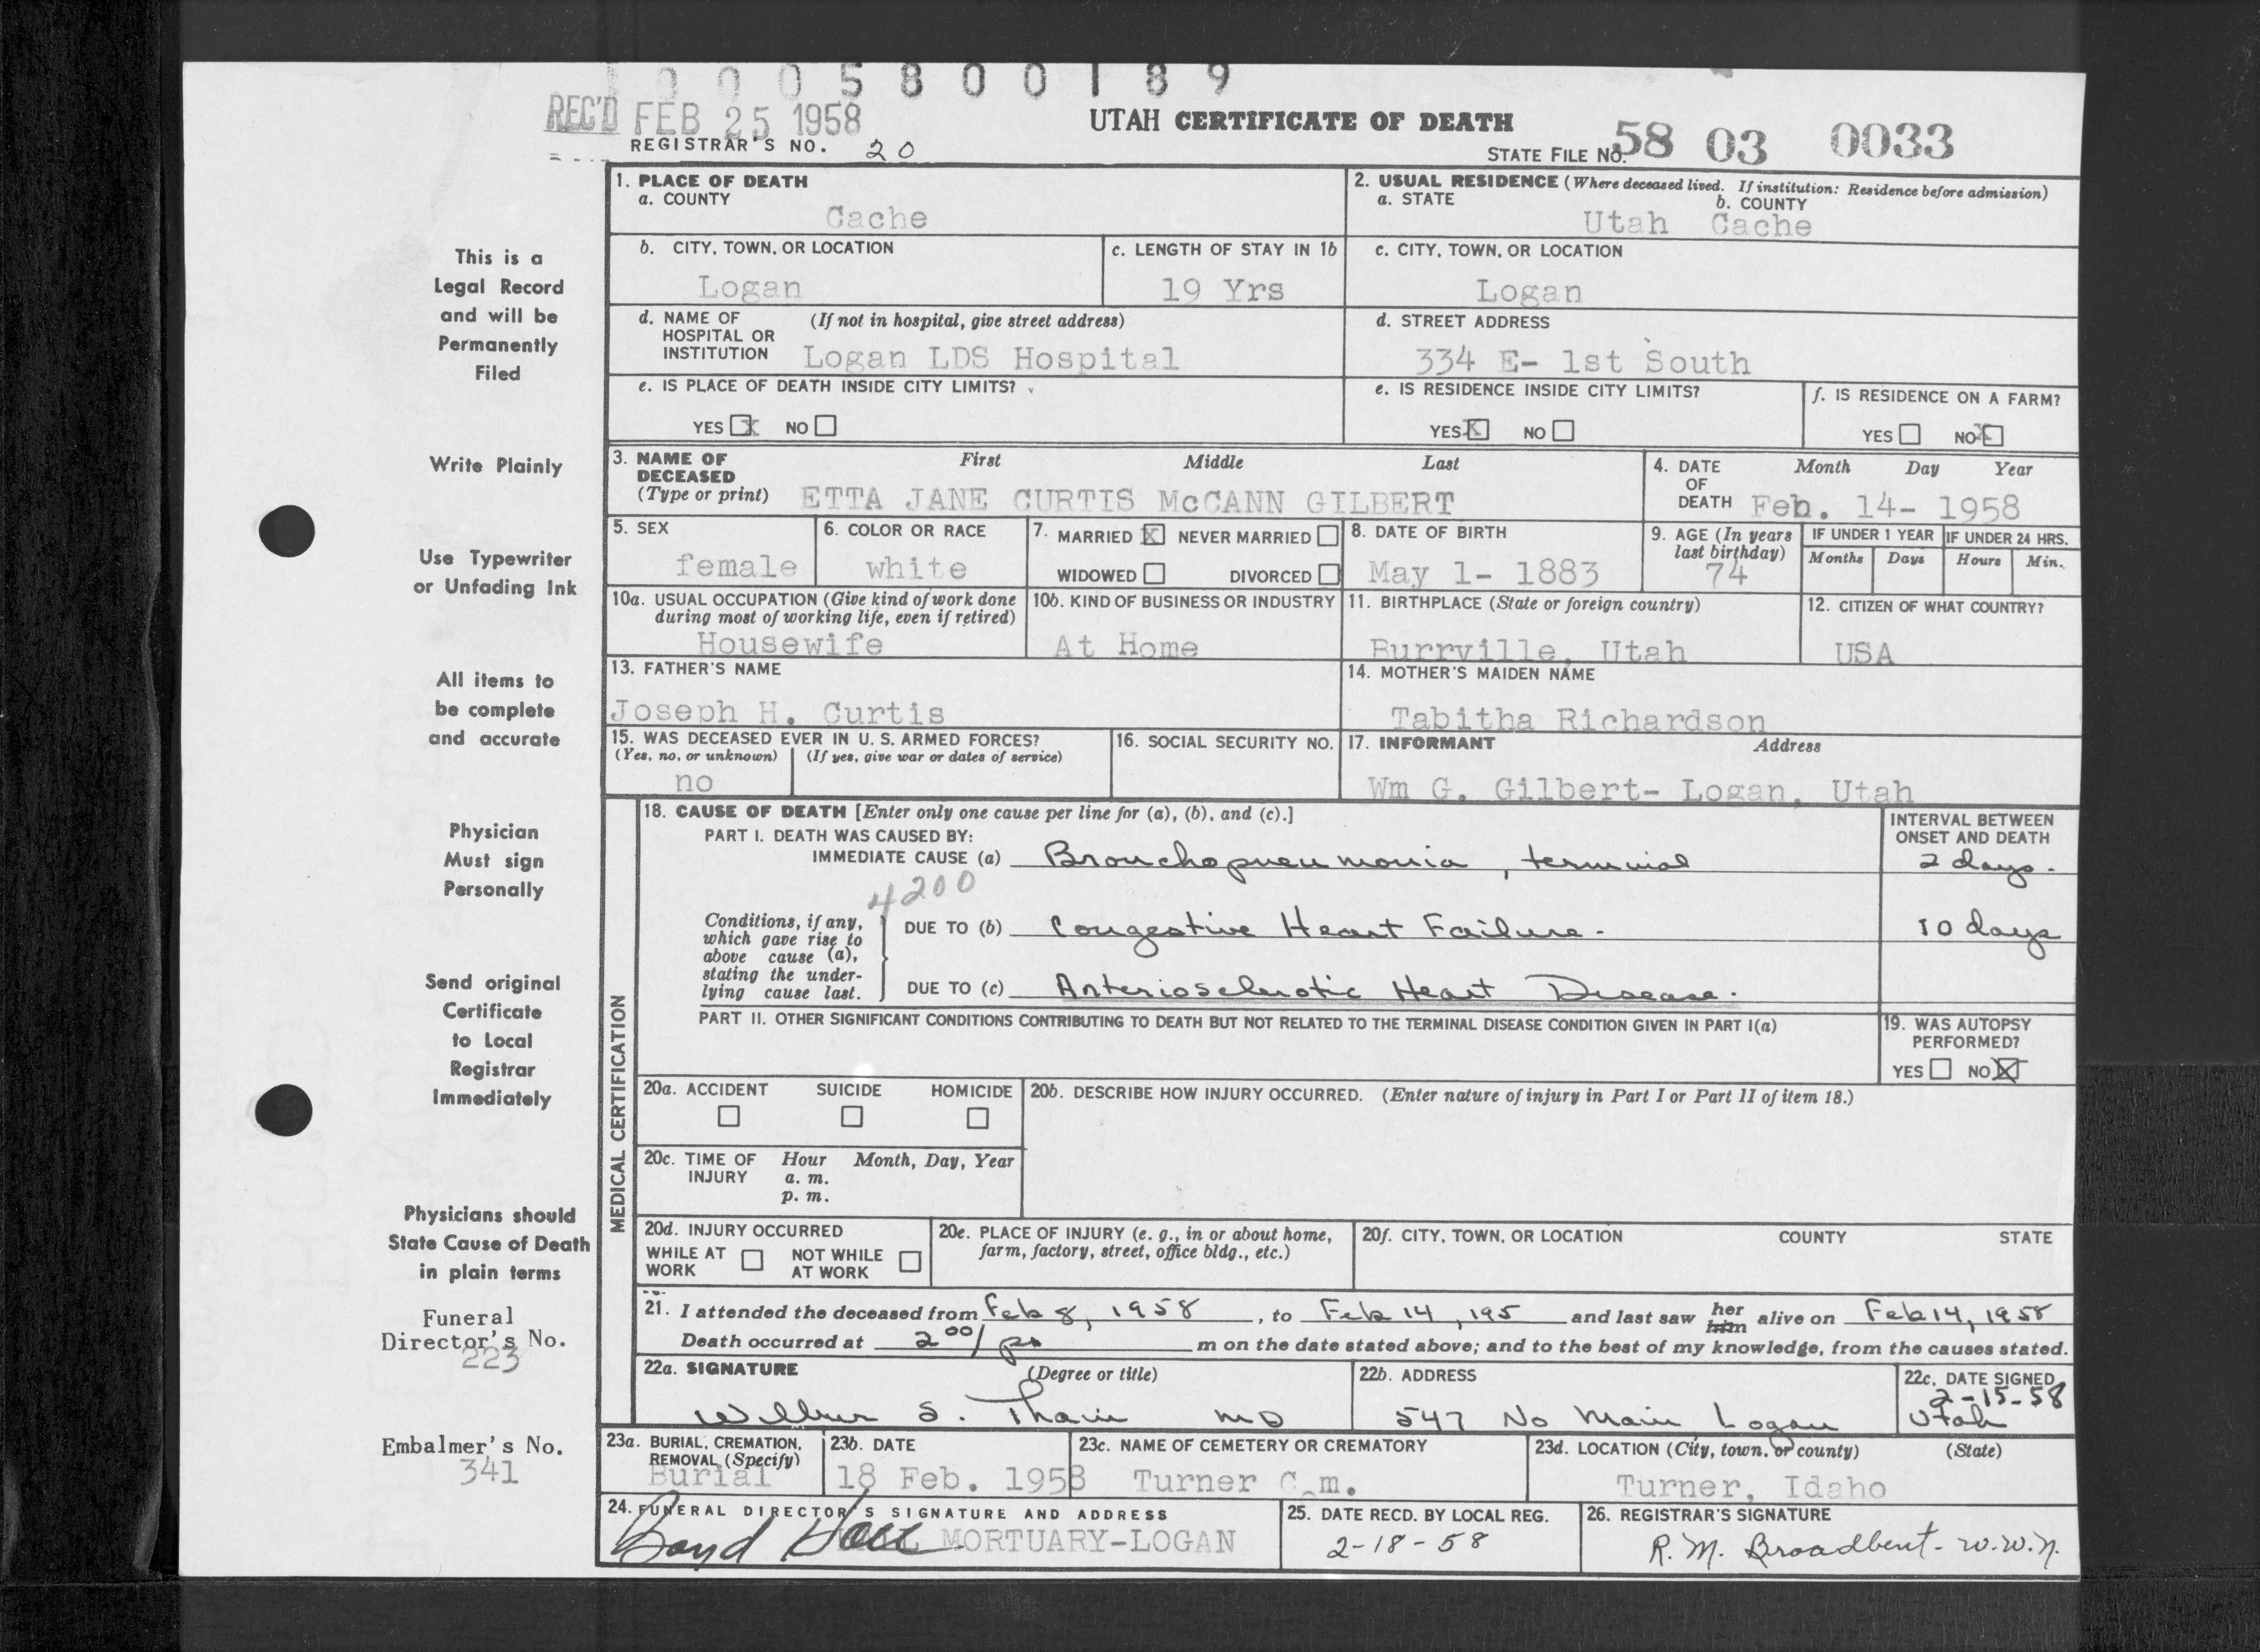 0005800189
REC'D FEB 25 1958
UTAH CERTIFICATE OF DEATH
REGISTRAR'S NO. 20
STATE FILE NO. 58 03 0033
This is a
Legal Record
and will be
Permanently
Filed
Write Plainly
Use Typewriter
or Unfading Ink
All items to
be complete
and accurate
Physician
Must sign
Personally
Send original
Certificate
to Local
Registrar
Immediately
Physicians should
State Cause of Death
in plain terms
Funeral
Director's No.
223
Embalmer's No.
341
1. PLACE OF DEATH
a. COUNTY
Cache
2. USUAL RESIDENCE (Where deceased lived. If institution: Residence before admission)
a. STATE b. COUNTY
Utah Cache
b. CITY, TOWN, OR LOCATION
Logan
c. LENGTH OF STAY IN 1b
19 Yrs
c. CITY, TOWN, OR LOCATION
Logan
d. NAME OF (If not in hospital, give street address)
HOSPITAL OR
INSTITUTION Logan LDS Hospital
d. STREET ADDRESS
334 E- 1st South
e. IS PLACE OF DEATH INSIDE CITY LIMITS?
YES X NO
e. IS RESIDENCE INSIDE CITY LIMITS?
YES X NO
f. IS RESIDENCE ON A FARM?
YES NO X
3. NAME OF First Middle Last
DECEASED
(Type or print) ETTA JANE CURTIS McCANN GILBERT
4. DATE Month Day Year
OF
DEATH Feb. 14- 1958
5. SEX
female
6. COLOR OR RACE
white
7. MARRIED X NEVER MARRIED
WIDOWED DIVORCED
8. DATE OF BIRTH
May 1- 1883
9. AGE (In years
last birthday)
74
IF UNDER 1 YEAR
Months Days
IF UNDER 24 HRS.
Hours Min.
10a. USUAL OCCUPATION (Give kind of work done
during most of working life, even if retired)
Housewife
10b. KIND OF BUSINESS OR INDUSTRY
At Home
11. BIRTHPLACE (State or foreign country)
Burrville, Utah
12. CITIZEN OF WHAT COUNTRY?
USA
13. FATHER'S NAME
Joseph H. Curtis
14. MOTHER'S MAIDEN NAME
Tabitha Richardson
15. WAS DECEASED EVER IN U. S. ARMED FORCES?
(Yes, no, or unknown) (If yes, give war or dates of service)
no
16. SOCIAL SECURITY NO.
17. INFORMANT Address
Wm G. Gilbert- Logan, Utah
MEDICAL CERTIFICATION
18. CAUSE OF DEATH [Enter only one cause per line for (a), (b), and (c).]
PART I. DEATH WAS CAUSED BY:
IMMEDIATE CAUSE (a) Bronchopneumonia, terminal
INTERVAL BETWEEN
ONSET AND DEATH
2 days.
4200
Conditions, if any,
which gave rise to
above cause (a),
stating the under-
lying cause last.
DUE TO (b) Congestive Heart Failure.
10 days
DUE TO (c) Arteriosclerotic Heart Disease.
PART II. OTHER SIGNIFICANT CONDITIONS CONTRIBUTING TO DEATH BUT NOT RELATED TO THE TERMINAL DISEASE CONDITION GIVEN IN PART I(a)
19. WAS AUTOPSY
PERFORMED?
YES NO X
20a. ACCIDENT SUICIDE HOMICIDE
20b. DESCRIBE HOW INJURY OCCURRED. (Enter nature of injury in Part I or Part II of item 18.)
20c. TIME OF Hour Month, Day, Year
INJURY a. m.
p. m.
20d. INJURY OCCURRED
WHILE AT NOT WHILE
WORK AT WORK
20e. PLACE OF INJURY (e. g., in or about home,
farm, factory, street, office bldg., etc.)
20f. CITY, TOWN, OR LOCATION COUNTY STATE
21. I attended the deceased from Feb 8, 1958, to Feb 14, 195 and last saw her him alive on Feb 14, 1958
Death occurred at 2 00/ pm m on the date stated above; and to the best of my knowledge, from the causes stated.
22a. SIGNATURE (Degree or title)
Wilbur S. Thain MD
22b. ADDRESS
547 No Main Logan Utah
22c. DATE SIGNED
2-15-58
23a. BURIAL, CREMATION,
REMOVAL (Specify)
Burial
23b. DATE
18 Feb. 1958
23c. NAME OF CEMETERY OR CREMATORY
Turner C m.
23d. LOCATION (City, town, or county) (State)
Turner, Idaho
24. FUNERAL DIRECTOR'S SIGNATURE AND ADDRESS
Boyd Hall MORTUARY-LOGAN
25. DATE RECD. BY LOCAL REG.
2-18-58
26. REGISTRAR'S SIGNATURE
R. M. Broadbent- w.w.n.